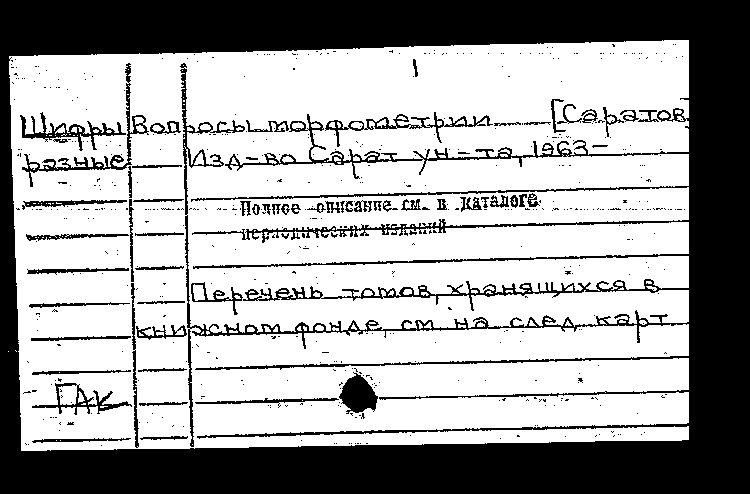 1
Шифры Вопросы морфометрии [Саратов]
разные Изд-во Сарат ун-та, 1963-
Полное описание см. в каталоге
периодических изданий
Перечень томов, хранящихся в
книжном фонде, см на след карт
ГАК